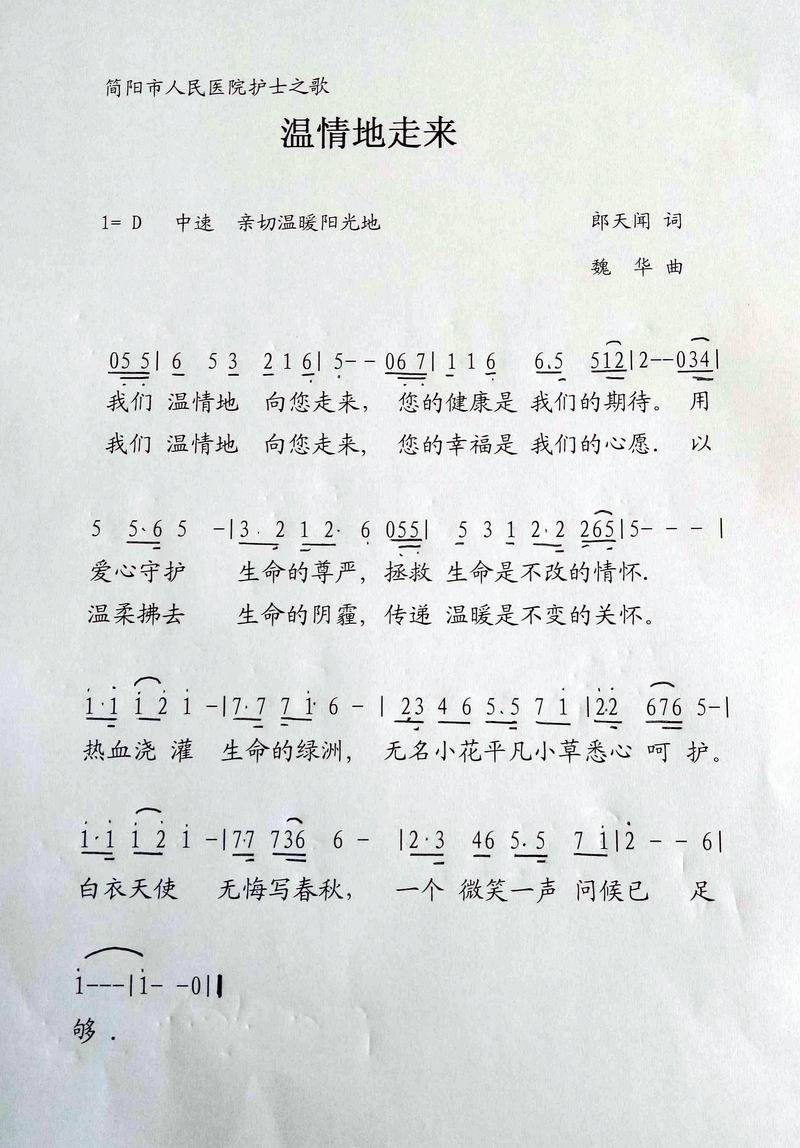 简阳市人民医院护士之歌
温情地走来
1= D 中速 亲切温暖阳光地 郎天闻 词
魏 华 曲
055|6 53 216|5--067|116 6.5 512|2--034|
我们 温情地 向您走来， 您的健康是 我们的期待。 用
我们 温情地 向您走来， 您的幸福是 我们的心愿. 以
5 5·6 5 -|3·2 12· 6 055|5 3 1 2·2 265|5- - - |
爱心守护 生命的尊严，拯救 生命是不改的情怀.
温柔拂去 生命的阴霾，传递 温暖是不变的关怀。
i·i i2 i -|7·7 7i 6 - | 23 4 6 5.5 7 i |2·2 676 5-|
热血浇 灌 生命的绿洲， 无名小花平凡小草悉心 呵 护。
i·i i2 i -|7·7 736 6 - |2·3 46 5.5 7 i|2 - - 6|
白衣天使 无悔写春秋， 一个 微笑一声 问候已 足
i---|i- -0||
够 .